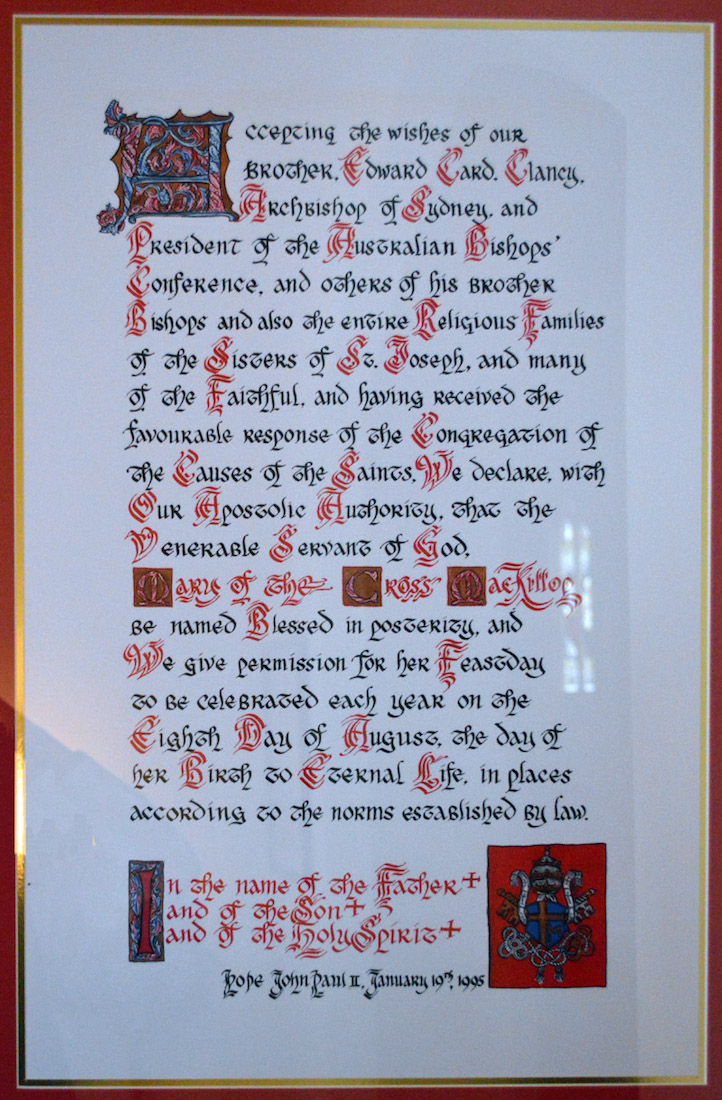 Accepting the wishes of our
Brother, Edward Card. Clancy,
Archbishop of Sydney, and
President of the Australian Bishops'
Conference, and others of his brother
Bishops and also the entire Religious Families
of the Sisters of St. Joseph, and many
of the Faithful, and having received the
favourable response of the Congregation of
the Causes of the Saints, We declare, with
Our Apostolic Authority, that the
Venerable Servant of God,
Mary of the Cross MacKillop
be named Blessed in posterity, and
We give permission for her Feastday
to be celebrated each year on the
Eighth Day of August, the day of
her Birth to Eternal Life, in places
according to the norms established by law.
In the name of the Father+
and of the Son+
and of the Holy Spirit+
Pope John Paul II, January 19th, 1995